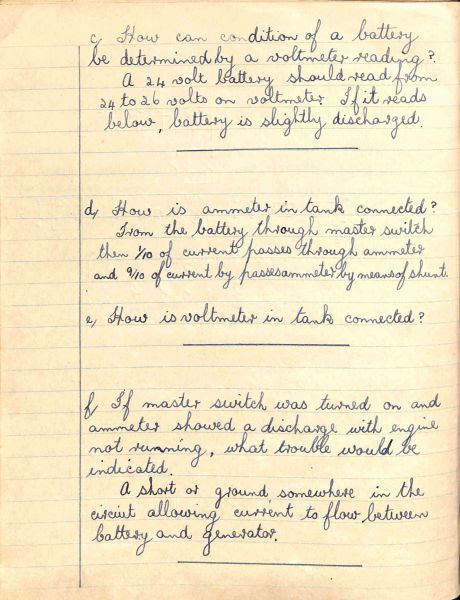 c, How can condition of a battery
be determined by a voltmeter reading?
A 24 volt battery should read from
24 to 26 volts on voltmeter If it reads
below, battery is slightly discharged.
d, How is ammeter in tank connected?
From the battery through master switch
then 1/10 of current passes through ammeter
and 9/10 of current by passes ammeter by means of shunt.
e, How is voltmeter in tank connected?
f, If master switch was turned on and
ammeter showed a discharge with engine
not running, what trouble would be
indicated.
A short or ground somewhere in the
circuit allowing current to flow between
battery and generator.